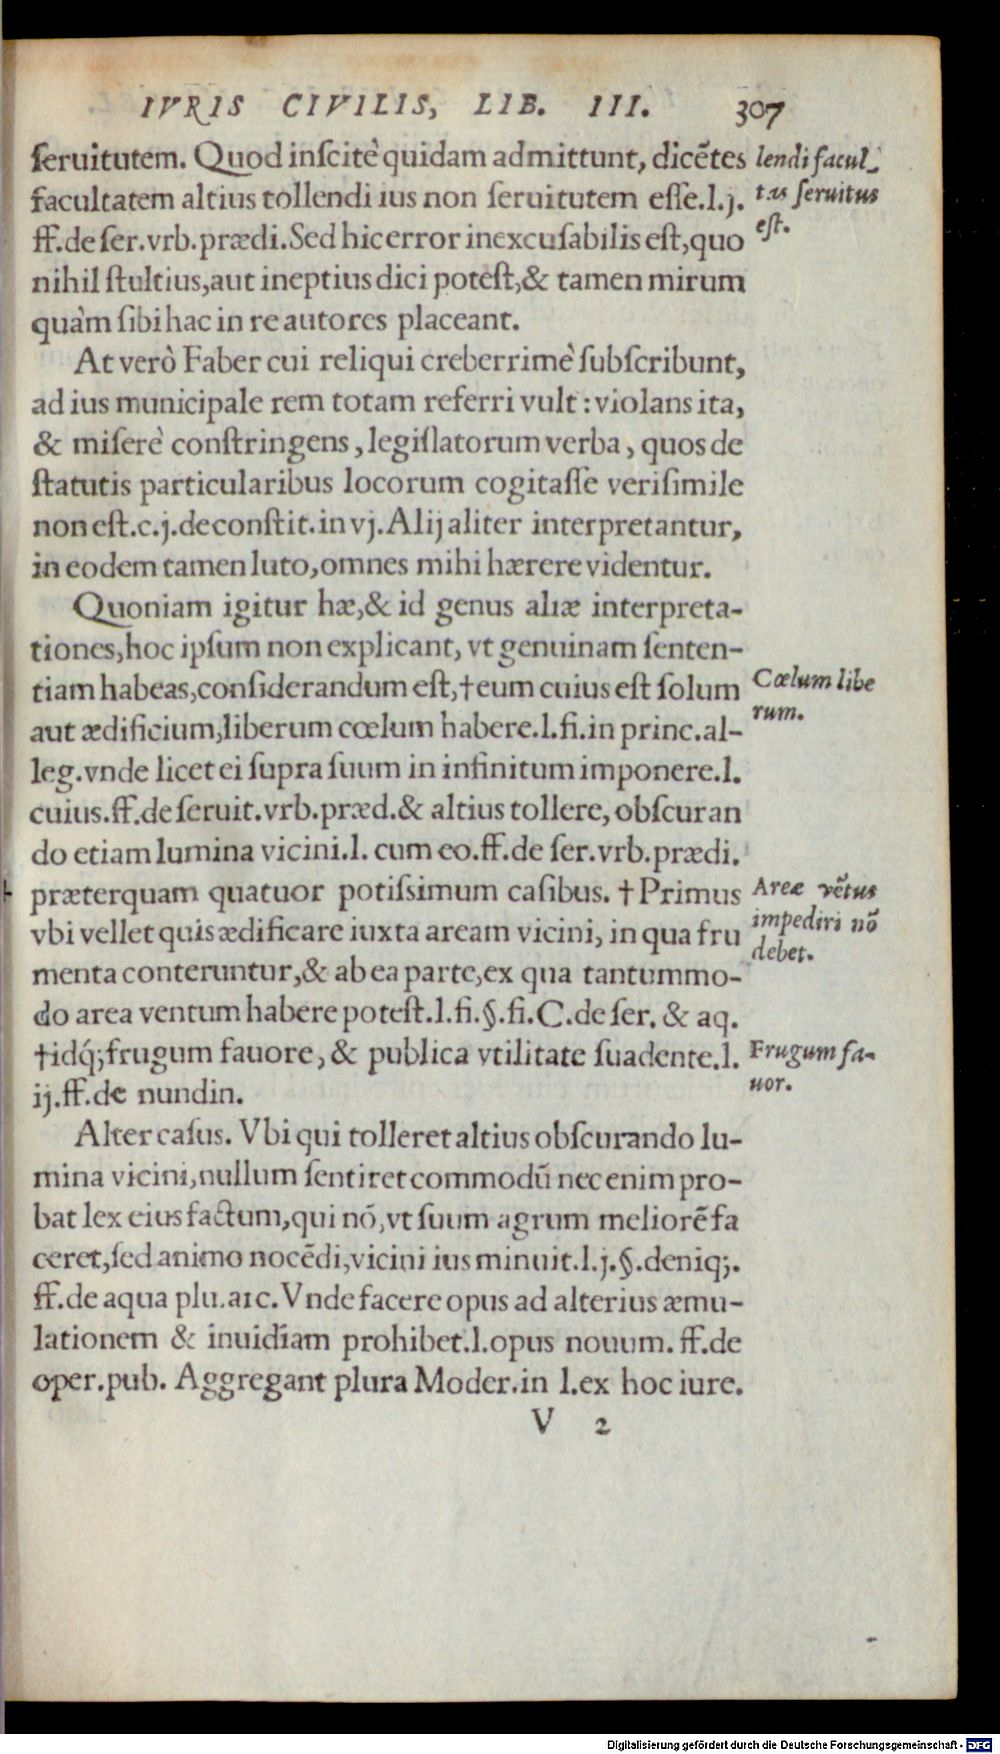 IVRIS CIVILIS, LIB. III. 307
ſeruitutem. Quod inſcitè quidam admittunt, dicẽtes
facultatem altius tollendi ius non ſeruitutem eſſe.l.j.
ff.de ſer.vrb.prædi.Sed hic error inexcuſabilis eſt,quo
nihil ſtultius,aut ineptius dici poteſt,& tamen mirum
quàm ſibi hac in re autores placeant.
lendi facul
tas ſeruitus
eſt.
At verò Faber cui reliqui creberrimè ſubſcribunt,
ad ius municipale rem totam referri vult : violans ita,
& miſerè conſtringens, legiſlatorum verba, quos de
ſtatutis particularibus locorum cogitaſſe veriſimile
non eſt.c.j.de conſtit.in vj. Alij aliter interpretantur,
in eodem tamen luto,omnes mihi hærere videntur.
Quoniam igitur hæ,& id genus aliæ interpreta-
tiones,hoc ipſum non explicant, vt genuinam ſenten-
tiam habeas,conſiderandum eſt,†eum cuius eſt ſolum
aut ædificium,liberum cœlum habere.l.fi.in princ.al-
leg.vnde licet ei ſupra ſuum in infinitum imponere.l.
cuius.ff.de ſeruit.vrb.præd.& altius tollere, obſcuran
do etiam lumina vicini.l. cum eo.ff.de ſer.vrb.prædi.
præterquam quatuor potiſsimum caſibus. † Primus
vbi vellet quis ædificare iuxta aream vicini, in qua fru
menta conteruntur,& ab ea parte,ex qua tantummo-
do area ventum habere poteſt.l.fi.§.fi.C.de ſer. & aq.
†idq́;frugum fauore, & publica vtilitate ſuadente.l.
ij.ff.de nundin.
Cœlum libe
rum.
Areæ vẽtus
impediri nõ
debet.
Frugum fa-
uor.
Alter caſus. Vbi qui tolleret altius obſcurando lu-
mina vicini,nullum ſentiret commodũ nec enim pro-
bat lex eius factum,qui nõ,vt ſuum agrum meliorẽ fa
ceret,ſed animo nocẽdi,vicini ius minuit.l.j.§.deniq;.
ff.de aqua plu.arc. Vnde facere opus ad alterius æmu-
lationem & inuidiam prohibet.l.opus nouum. ff.de
oper.pub. Aggregant plura Moder.in l.ex hoc iure.
V 2
Digitalisierung gefördert durch die Deutsche Forschungsgemeinschaft - DFG